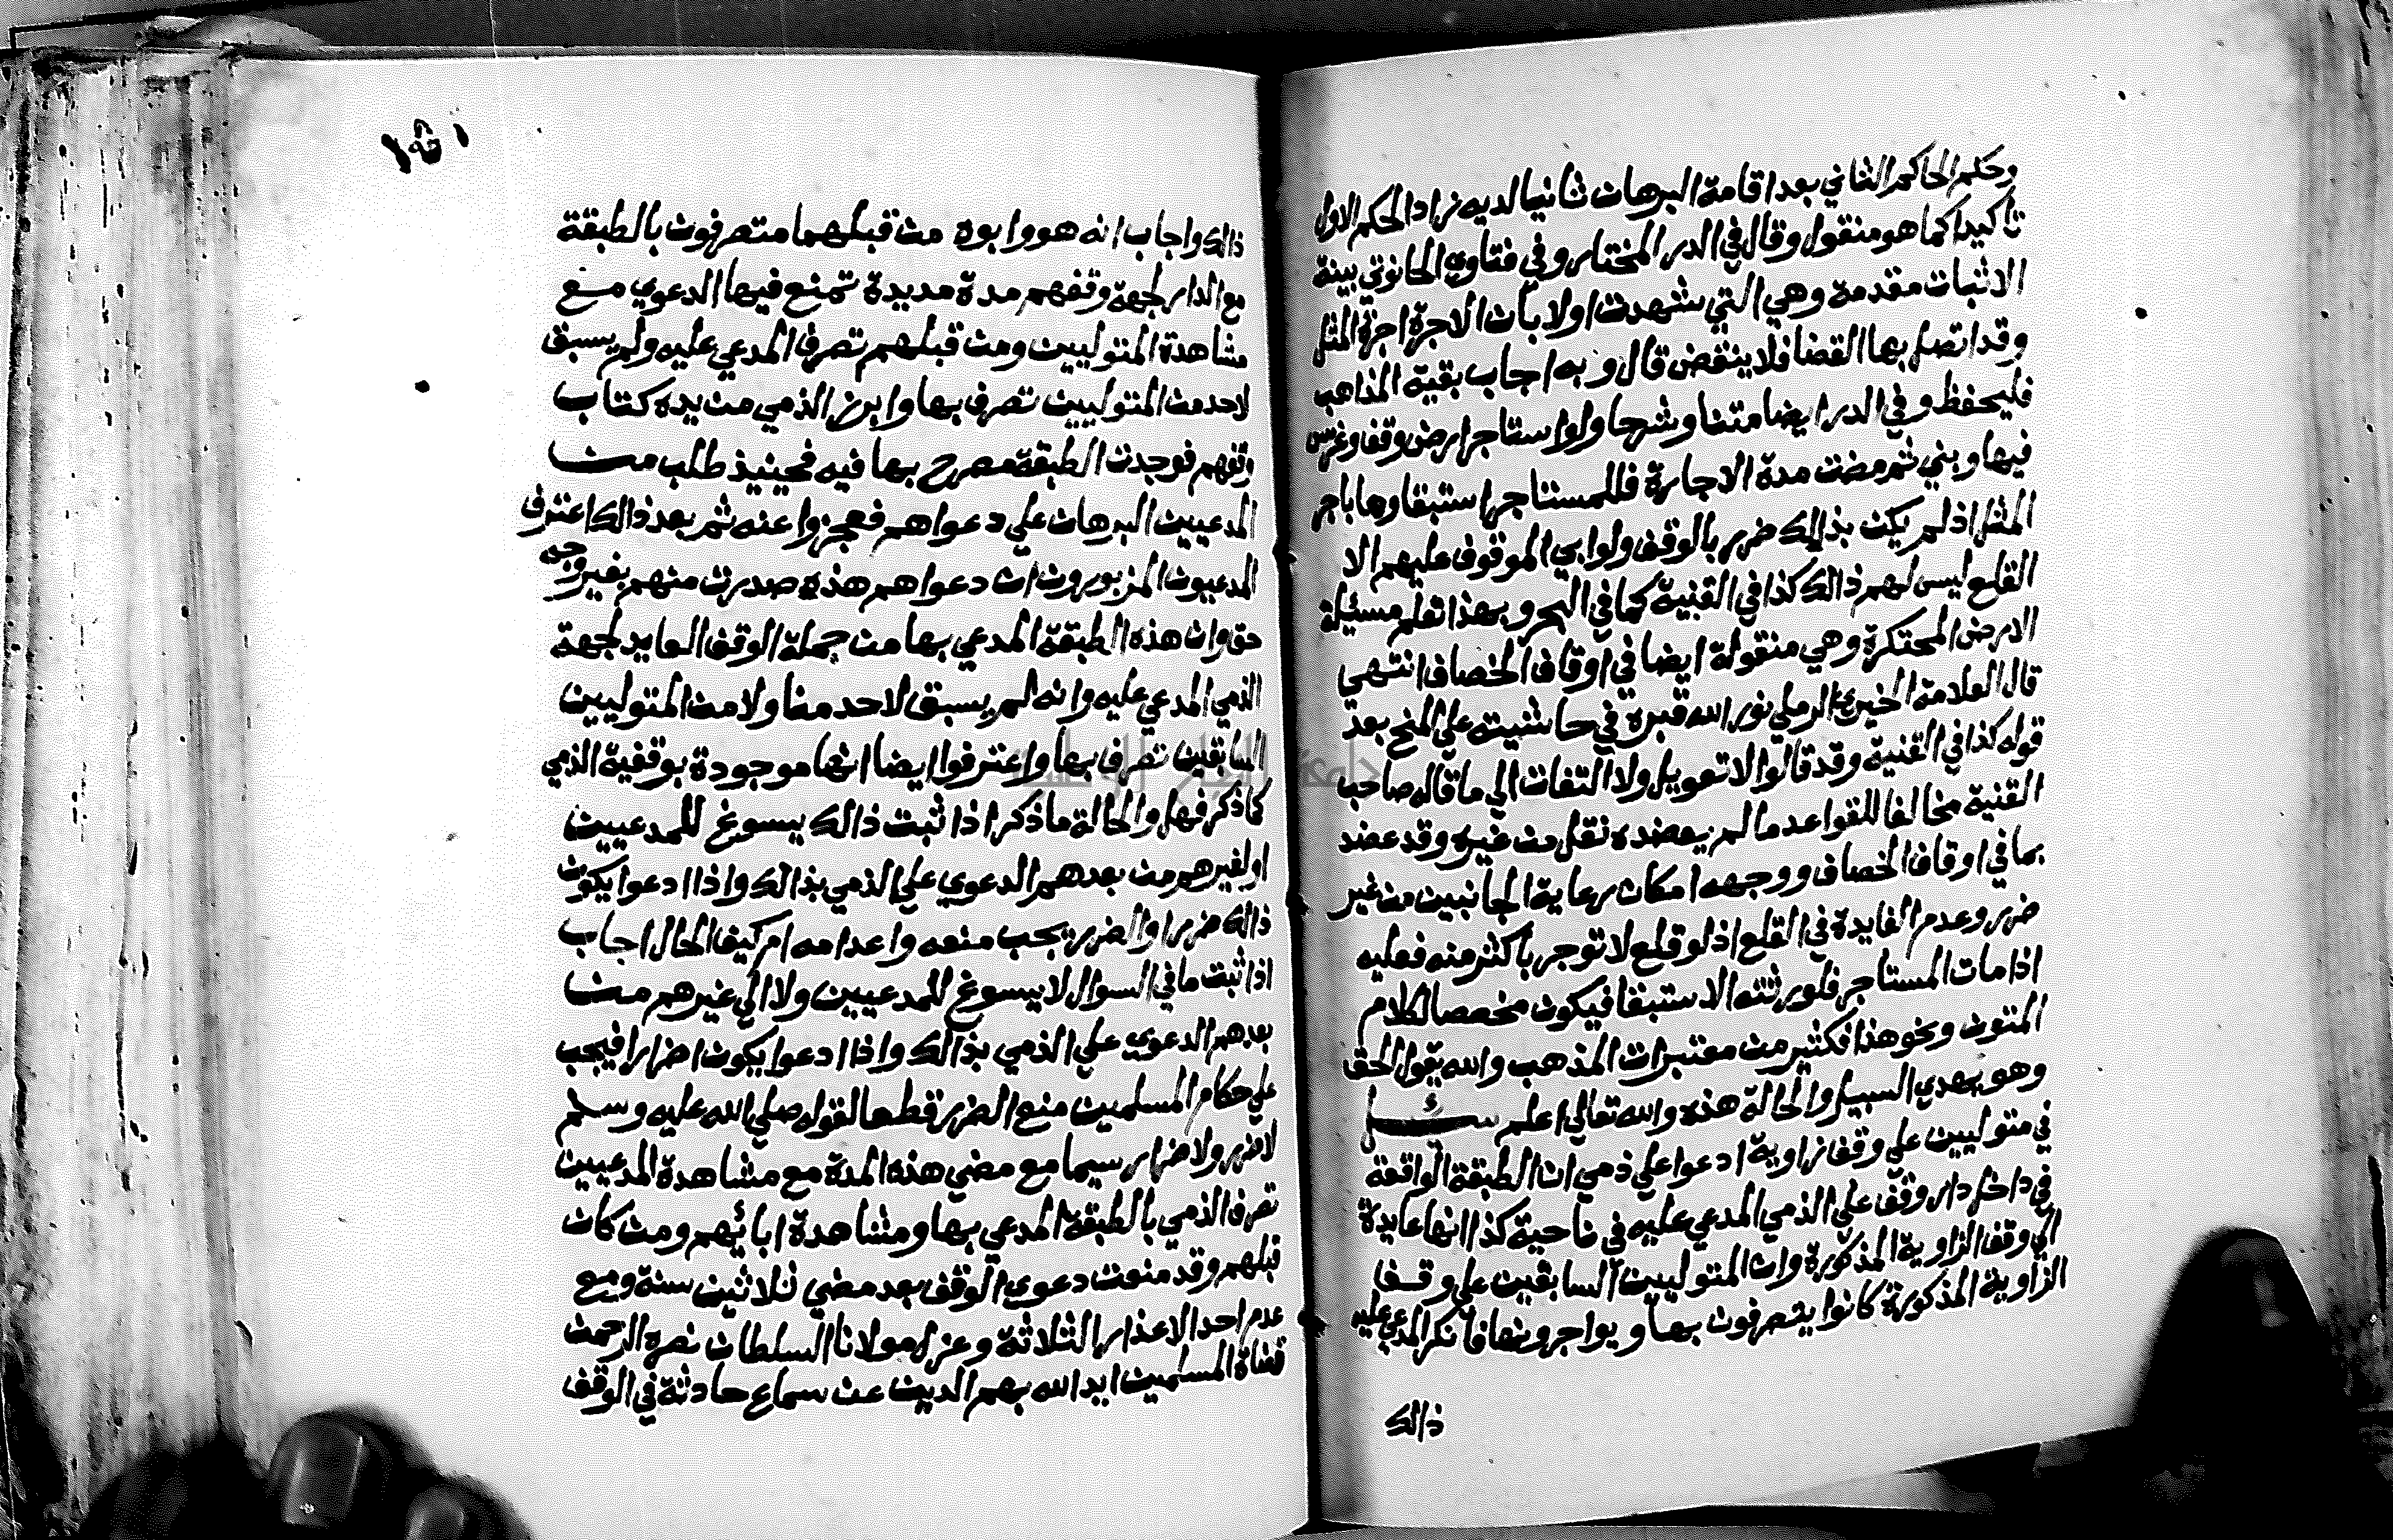 وحكم الحاكم الثاني بعد اقامة البرهان ثانيا لديه زاد الحكم الاول
تاكيدا كما هو منقول وقال في الدر المختار وفي فتاوي الحانوتي بينة
الاثبات مقدمة وهي التي شهدت اولا بان الاجرة اجرة المثل
وقد اتصل بها القضا فلا ينقض قال وبه اجاب بقية المذاهب
فليحفظ وفي الدر ايضا متنا وشرحا ولو استاجر ارض وقف وغرس
فيها وبني ثم مضت مدة الاجارة فللمستاجر استبقاوها باجر
المثل اذ لم يكن بذالك ضرر بالوقف ولو ابي الموقوف عليهم الا
القلع ليس لهم ذالك كذا في القنية كما في البحر وبهذا تعلم مسئيلة
الارض المحتكرة وهي منقولة ايضا في اوقاف الخصاف انتهي
قال العلامة الخيري الرملي نور الله قبره في حاشيته علي المنح بعد
قوله كذا في القنية وقد قالوا لا تعويل ولا التفات الي ما قاله صاحب
القنية مخالفا للقواعد ما لم يعضده نقل من غيره وقد عضد
بما في اوقاف الخصاف ووجهه امكان رعاية الجانبين من غير
ضرر وعدم الفايدة في القلع اذ لو قلع لا توجر باكثر منه فعليه
اذا مات المستاجر فلورثته الاستبقا فيكون مخصصا لكلام
المتون ونحو هذا فكثير من معتبرات المذهب والله يقول الحق
وهو يهدي السبيل والحالة هذه والله تعالي اعلم سئل
في متوليين علي وقف زاوية ادعوا علي ذمي ان الطبقة الواقعة
في داخل دار وقف علي الذمي المدعي عليه في ناحية كذا انها عايدة
الي وقف الزاوية المذكورة وان المتوليين السابقين علي وقف
الزاوية المذكورة كانوا يتصرفون بها ويواجرونها فانكر المدعي عليه
ذالك
١٥١
ذالك واجاب انه هو وابوه من قبلهما متصرفون بالطبقة
مع الدار لجهة وقفهم مدة مديدة تمنع فيها الدعوي مع
مشاهدة المتوليين ومن قبلهم تصرف المدعي عليه ولم يسبق
لاحد من المتوليين تصرف بها وابرز الذمي من يده كتاب
وقفهم فوجدت الطبقة مصرح بها فيه فحينيذ طلب من
المدعيين البرهان علي دعواهم فعجزوا عنه ثم بعد ذالك اعترف
المدعيون المزبورون ان دعواهم هذه صدرت منهم بغير وجه
حق وان هذه الطبقة المدعي بها من جملة الوقف العايد لجهة
الذمي المدعي عليه وانه لم يسبق لاحد منا ولا من المتوليين
السابقين تصرف بها واعترفوا ايضا انها موجودة بوقفية الذمي
كما ذكر فهل والحالة ما ذكر اذا ثبت ذالك يسوغ للمدعيين
او لغيرهم من بعدهم الدعوي علي الذمي بذالك واذا ادعوا يكون
ذالك ضررا والضرر يجب منعه واعدامه ام كيف الحال اجاب
اذا ثبت ما في السوال لا يسوغ للمدعيين ولا الي غيرهم من
بعدهم الدعوي علي الذمي بذالك واذا ادعوا يكون اضرارا فيجب
علي حكام المسلمين منع الضرر قطعا لقوله صلي الله عليه وسلم
لا ضرر ولا ضرار سيما مع مضي هذه المدة مع مشاهدة المدعيين
تصرف الذمي بالطبقة المدعي بها ومشاهدة ابائهم ومن كان
قبلهم وقد منعت دعوي الوقف بعد مضي ثلاثين سنة ومع
عدم احد الاعذار الثلاثة وعزل مولانا السلطان نصره الرحمن
قضاة المسلمين ايد الله بهم الدين عن سماع حادثة في الوقف